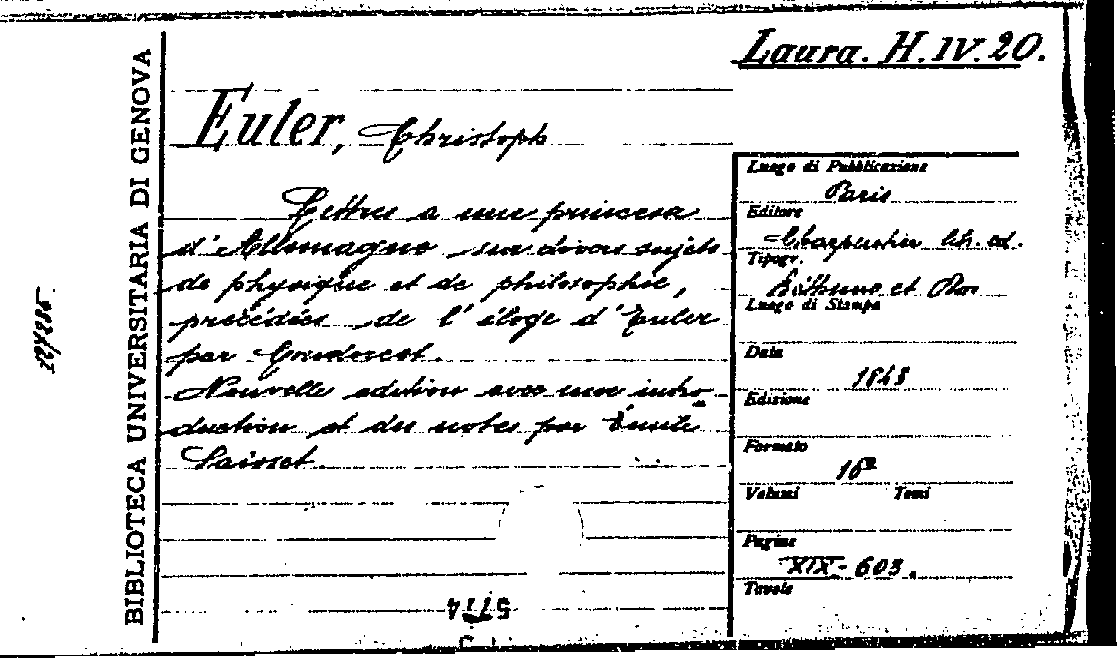 Laura. H. IV. 20.
BIBLIOTECA UNIVERSITARIA DI GENOVA
Euler, Christoph
Lettres a une princesa
d'Allemagne sur divers sujets
de physique et de philosophie,
précédées de l'éloge d'Euler
par Condorcet.
Nouvelle edition avec une intro
duction et des notes par Émile
Saisset.
Luogo di Pubblicazione
Paris
Editore
Charpentier lib. ed.
Tipogr.
et
Luogo di Stampa
Data
1843
Edizione
Formato
16°
Volumi Tomi
Pagine
XIX-603.
Tavole
5774